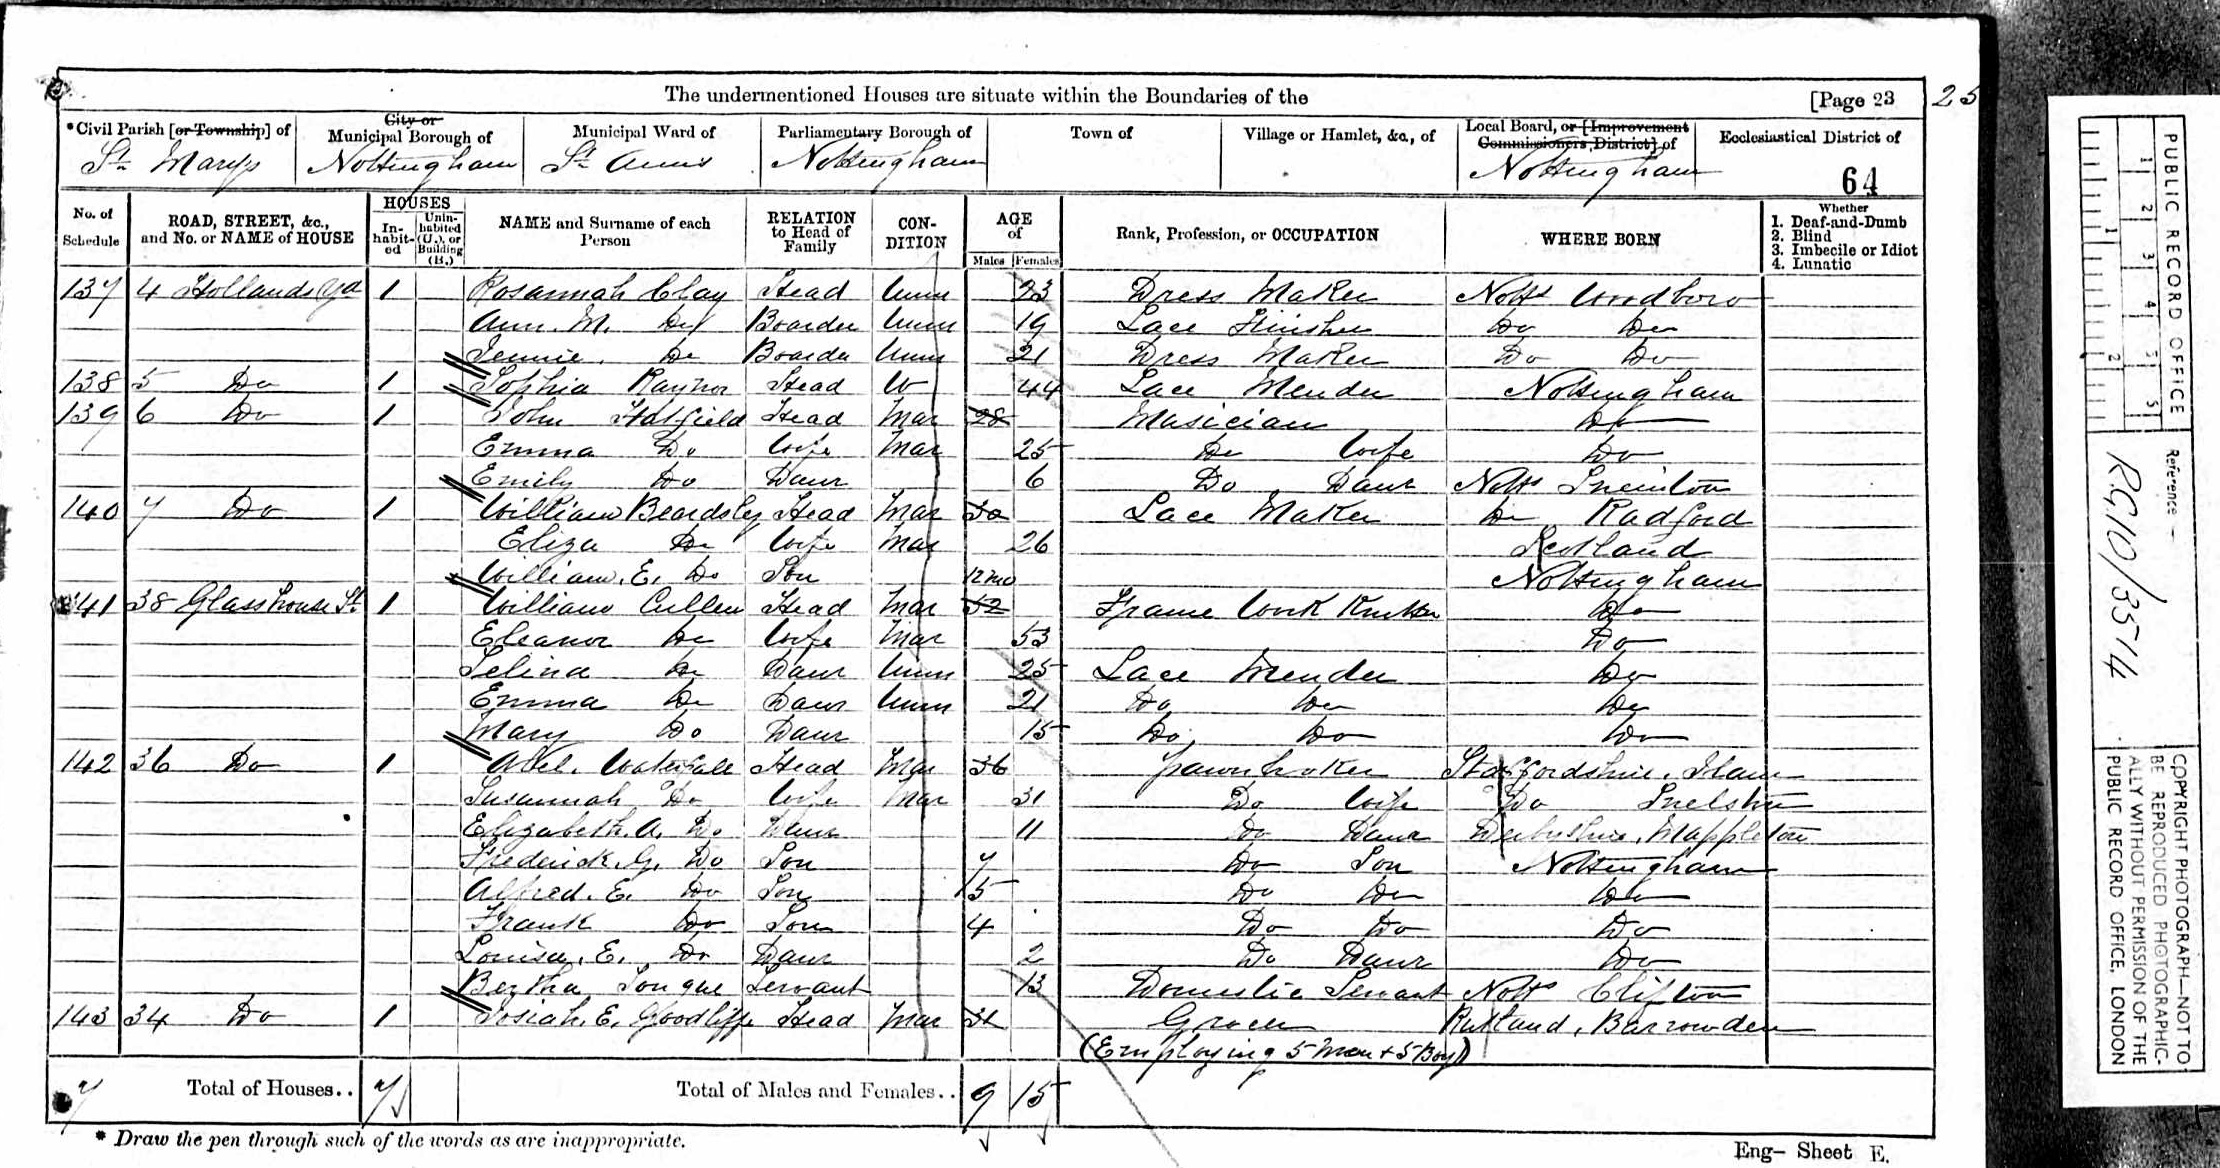 The undermentioned Houses are situate within the Boundaries of the [Page 23 25
*Civil Parish [or Township] of City or Municipal Borough of Municipal Ward of Parliamentary Borough of Town of Village or Hamlet, &c., of Local Board, or [Improvement Commissioners District] of Ecclesiastical District of
St Marys Nottingham St Anns Nottingham Nottingham 64
No. of Schedule ROAD, STREET, &c., and No. or NAME of HOUSE HOUSES Inhabited Uninhabited (U.), or Building (B.) NAME and Surname of each Person RELATION to Head of Family CONDITION AGE of Males Females Rank, Profession, or OCCUPATION WHERE BORN Whether 1. Deaf-and-Dumb 2. Blind 3. Imbecile or Idiot 4. Lunatic
137 4 Hollands Yd 1 Rosannah Clay Head Unm 23 Dress Maker Notts Woodboro
Ann. M. Do Boarder Unm 19 Lace Finisher Do Do
Jennie. Do Boarder Unm 21 Dress Maker Do Do
138 5 Do 1 Sophia Raynor Head W 44 Lace Mender Nottingham
139 6 Do 1 John Hatfield Head Mar 28 Musician Do
Emma Do Wife Mar 25 Do Wife Do
Emily Do Daur 6 Do Daur Notts Sneinton
140 7 Do 1 William Beardsley Head Mar 30 Lace Maker Do Radford
Eliza Do Wife Mar 26 Scotland
William. E. Do Son 12 mo Nottingham
141 38 Glasshouse St 1 William Cullen Head Mar 52 Frame Work Knitter Do
Eleanor Do Wife Mar 53 Do
Selina Do Daur Unm 25 Lace Mender Do
Emma Do Daur Unm 21 Do Do Do
Mary Do Daur 15 Do Do Do
142 36 Do 1 Abel. Waterfall Head Mar 36 Pawnbroker Staffordshire. Ilam
Susannah Do Wife Mar 31 Do Wife Do Snelston
Elizabeth. A. Do Daur 11 Do Daur Derbyshire. Mappleton
Frederick. G. Do Son 7 Do Son Nottingham
Alfred. E. Do Son 5 Do Do Do
Frank Do Son 4 Do Do Do
Louisa. E. Do Daur 2 Do Daur Do
Bertha Tongue Servant 13 Domestic Servant Notts Clifton
143 34 Do 1 Josiah. E. Goodliffe Head Mar 31 Grocer Rutland, Barrowden
(Employing 5 Men + 5 Boys)
7 Total of Houses.. 7 Total of Males and Females.. 9 15
* Draw the pen through such of the words as are inappropriate.
Eng- Sheet E.
PUBLIC RECORD OFFICE
1 2 3 4 5
1 2
Reference :-
R.G.10/3514
COPYRIGHT PHOTOGRAPH—NOT TO
BE REPRODUCED PHOTOGRAPHIC-
ALLY WITHOUT PERMISSION OF THE
PUBLIC RECORD OFFICE, LONDON